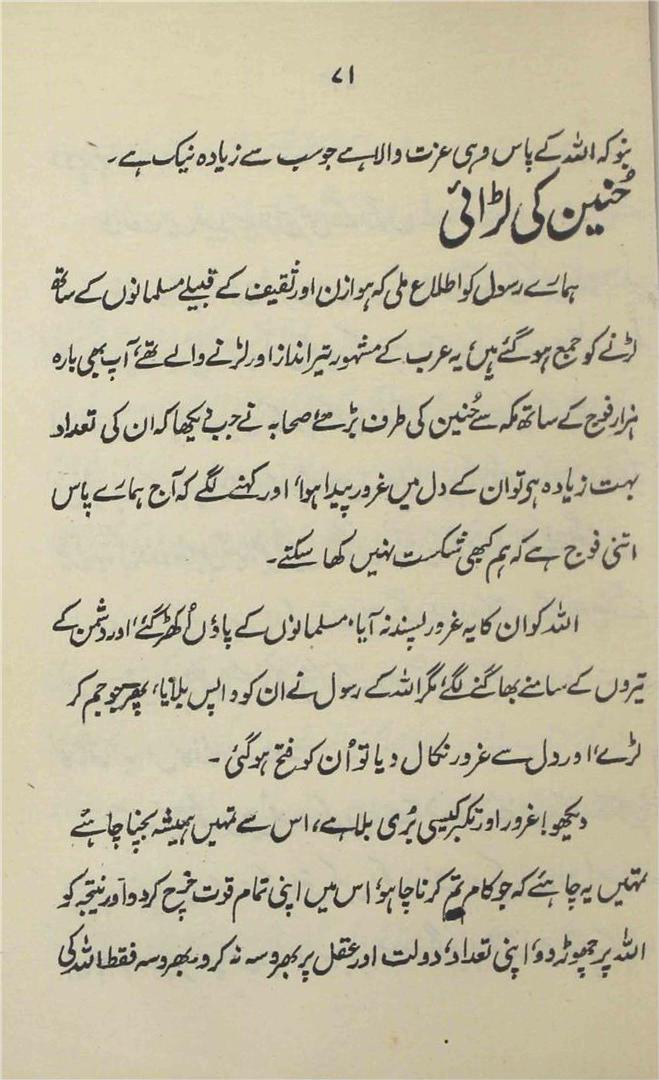 ۷۱
بنو کہ اللہ کے پاس وہی عزت والا ہے جو سب سے زیادہ نیک ہے۔
حُنین کی لڑائی
ہمارے رسول کو اطلاع ملی کہ ہوازن اور ثقیف کے قبیلے مسلمانوں کے ساتھ
لڑنے کو جمع ہو گئے ہیں، یہ عرب کے مشہور تیر انداز اور لڑنے والے تھے، آپ بھی بارہ
ہزار فوج کے ساتھ مکہ سے حُنین کی طرف بڑھے، صحابہ نے جب دیکھا کہ ان کی تعداد
بہت زیادہ ہی تو ان کے دل میں غرور پیدا ہوا، اور کہنے لگے کہ آج ہمارے پاس
اتنی فوج ہے کہ ہم کبھی شکست نہیں کھا سکتے۔
اللہ کو ان کا یہ غرور پسند نہ آیا، مسلمانوں کے پاؤں اُکھڑ گئے، اور دشمن کے
تیروں کے سامنے بھاگنے لگے، مگر اللہ کے رسول نے ان کو واپس بلایا، پھر جو جم کر
لڑے، اور دل سے غرور نکال دیا تو اُن کو فتح ہو گئی۔
دیکھو! غرور اور تکبر کیسی بُری بلا ہے، اس سے تمہیں ہمیشہ بچنا چاہئے
تمہیں یہ چاہئے کہ جو کام تم کرنا چاہو، اس میں اپنی تمام قوت خرچ کر دو اور نتیجہ کو
اللہ پر چھوڑ دو، اپنی تعداد، دولت اور عقل پر بھروسہ نہ کرو، بھروسہ فقط اللہ کی